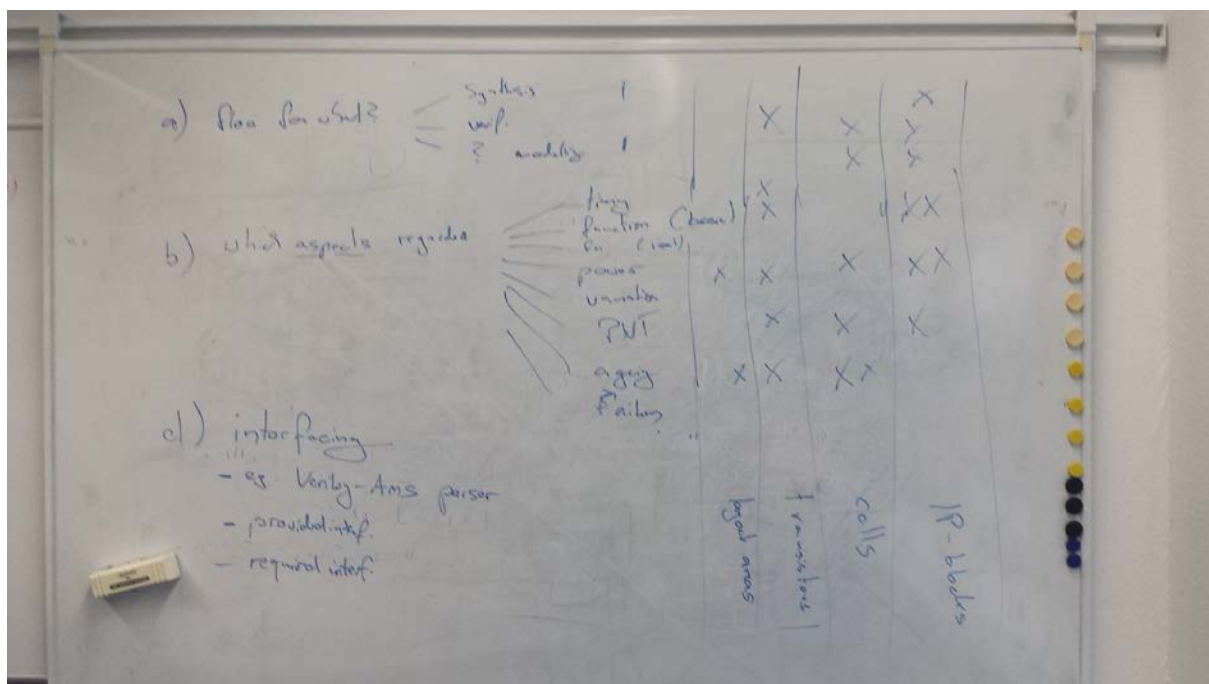 a) flow for what?
Synthesis
verif.
? modeling
b) which aspects regarded
timing
function (boolean)
fn (real)
power
variation
PVT
ageing
Failures
d) interfacing
- eg Verilog-AMS parser
- provided intf.
- required interf.
layout areas
transistors
cells
IP-blocks